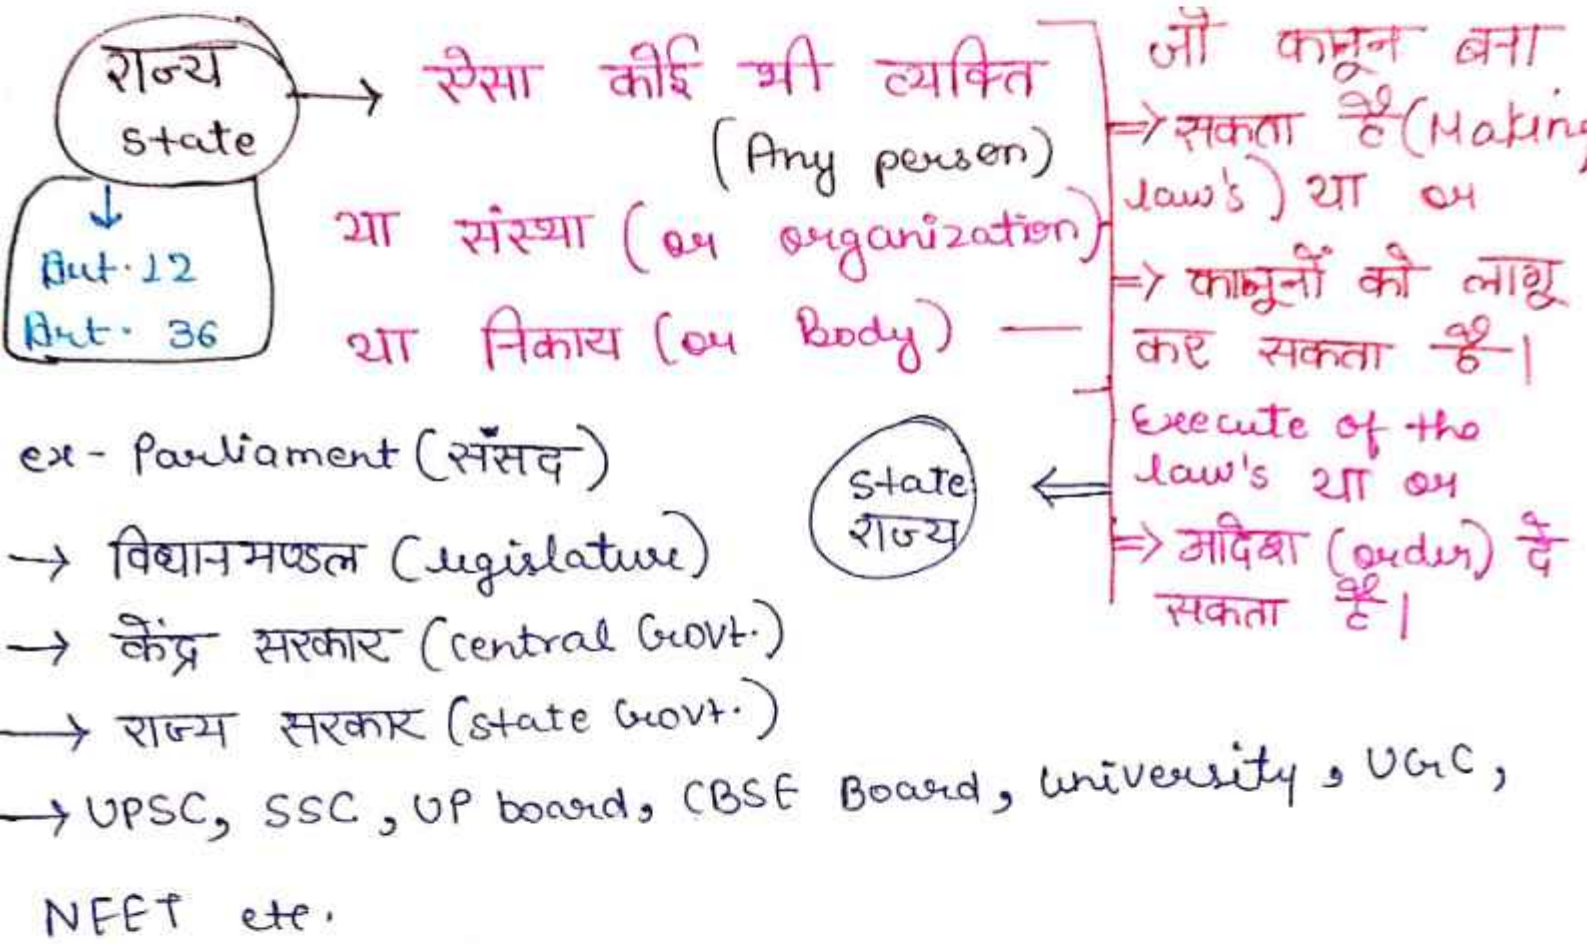 राज्य
state
Art. 12
Art. 36
→ ऐसा कोई भी व्यक्ति
(Any person)
या संस्था (or organization)
या निकाय (or Body)
जो कानून बना
⇒ सकता है (Making
law's) या or
⇒ कानूनों को लागू
कर सकता है।
Execute of the
law's या or
⇒ आदेश (order) दे
सकता है।
state
राज्य
ex - Parliament (संसद)
→ विधानमण्डल (legislature)
→ केंद्र सरकार (central Govt.)
→ राज्य सरकार (state Govt.)
→ UPSC, SSC, UP board, CBSE Board, university, UGC,
NEET etc.